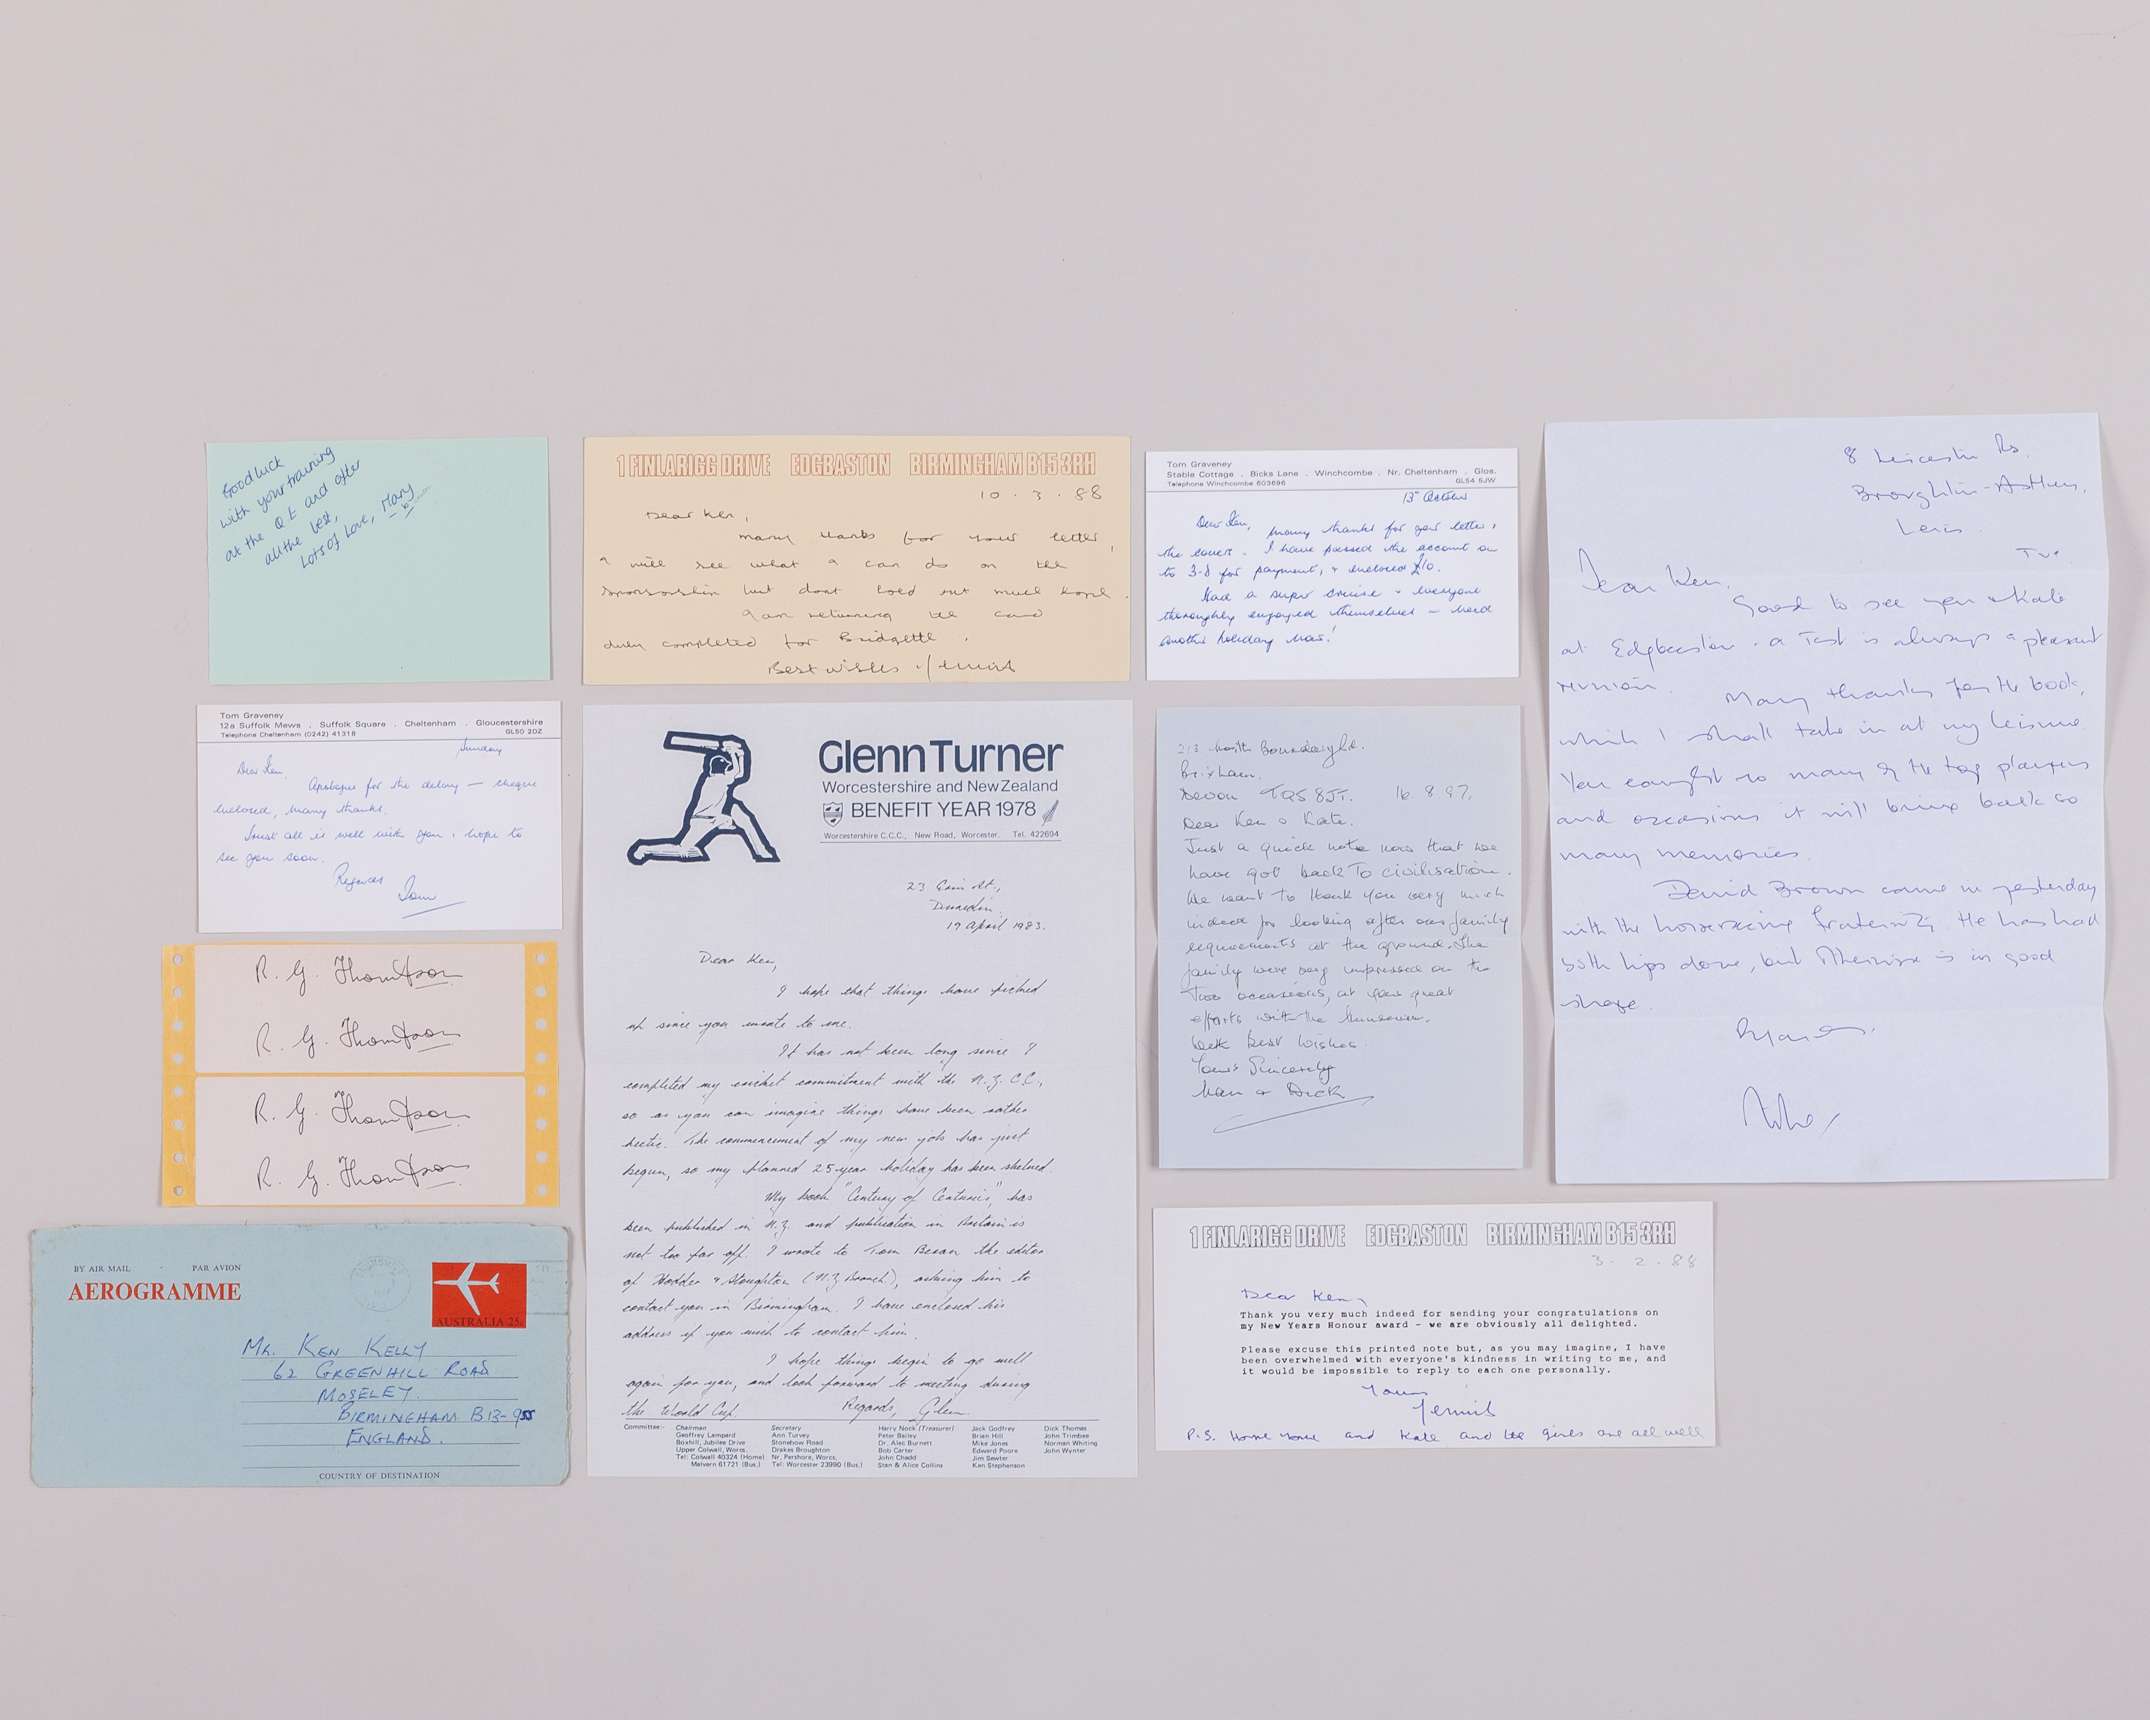 Good luck
with your training
at the Q E and after
all the best,
Lots of Love, Mary
1 FINLARIGG DRIVE EDGBASTON BIRMINGHAM B15 3RH
10 . 3 . 88
Dear Ken,
Many thanks for your letter,
I will see what I can do on the
sponsorship but dont hold out much hope.
I am returning the card
duly completed for Bridgette.
Best wishes
Tom Graveney
Stable Cottage . Bicks Lane . Winchcombe . Nr. Cheltenham . Glos.
Telephone Winchcombe 603696 GL54 5JW
13th October
Dear Ken, Many thanks for your letter &
the covers. I have passed the account on
to 3-d for payment, & enclosed £10.
Had a super cruise & everyone
thoroughly enjoyed themselves - need
another holiday now!
8 Leicester Rd.
Broughton-Astley,
Leics
Dear Ken,
Good to see you & Kate
at Edgbaston. a Test is always a pleasant
reunion. Many thanks for the book,
which I shall take in at my leisure.
You caught so many of the top players
and occasions it will bring back so
many memories.
David Brown came in yesterday
with the horseracing fraternity. He has had
both hips done, but otherwise is in good
shape.
Tom Graveney
12a Suffolk Mews . Suffolk Square . Cheltenham . Gloucestershire
Telephone Cheltenham (0242) 41318 GL50 2DZ
Sunday
Dear Ken,
Apologies for the delay — cheque
enclosed, many thanks.
Trust all is well with you & hope to
see you soon.
Regards
Tom
R. G. Thompson
R. G. Thompson
R. G. Thompson
R. G. Thompson
BY AIR MAIL · PAR AVION
AEROGRAMME
AUSTRALIA 25c
MR. KEN KELLY
62 GREENHILL ROAD
MOSELEY.
BIRMINGHAM B13-9SS
ENGLAND.
COUNTRY OF DESTINATION
Glenn Turner
Worcestershire and New Zealand
BENEFIT YEAR 1978
Worcestershire C.C.C., New Road, Worcester. Tel. 422694
Dunedin
19 April 1983.
Dear Ken,
I hope that things have picked
up since you wrote to me.
It has not been long since I
completed my cricket commitment with the N.Z.C.C.,
so as you can imagine things have been rather
hectic. The commencement of my new job has just
begun, so my planned 25 year holiday has been shelved.
My book "Century of Centuries", has
been published in N.Z. and publication in Britain is
not too far off. I wrote to Tom Beran the editor
of Hodder & Stoughton (N.Z Branch), asking him to
contact you in Birmingham. I have enclosed his
address if you wish to contact him.
I hope things begin to go well
again for you, and look forward to meeting during
the World Cup. Regards, Glenn.
Committee:- Chairman Secretary Harry Nock (Treasurer) Jack Godfrey Dick Thomes
Geoffrey Lampard Ann Turvey Peter Bailey Brian Hill John Trimbee
Boxhill, Jubilee Drive Stonebow Road Dr. Alec Burnett Mike Jones Norman Whiting
Upper Colwall, Worcs. Drakes Broughton Bob Carter Edward Poore John Wynter
Tel: Colwall 40324 (Home) Nr. Pershore, Worcs. John Chadd Jim Sewter
Malvern 61721 (Bus.) Tel: Worcester 23990 (Bus.) Stan & Alice Collins Ken Stephenson
213 North Boundary Rd.
Brixham.
Devon TQ5 8JT. 16.8.97.
Dear Ken & Kate.
Just a quick note now that we
have got back to civilisation.
We want to thank you very much
indeed for looking after our family
requirements at the ground. The
family were very impressed on the
two occasions, at your great
efforts with the
With best wishes
Yours Sincerely
Nan & Dick
1 FINLARIGG DRIVE EDGBASTON BIRMINGHAM B15 3RH
3 . 2 . 88
Dear Ken,
Thank you very much indeed for sending your congratulations on
my New Years Honour award - we are obviously all delighted.
Please excuse this printed note but, as you may imagine, I have
been overwhelmed with everyone's kindness in writing to me, and
it would be impossible to reply to each one personally.
Yours
P.S. Home and Kate and the girls are all well